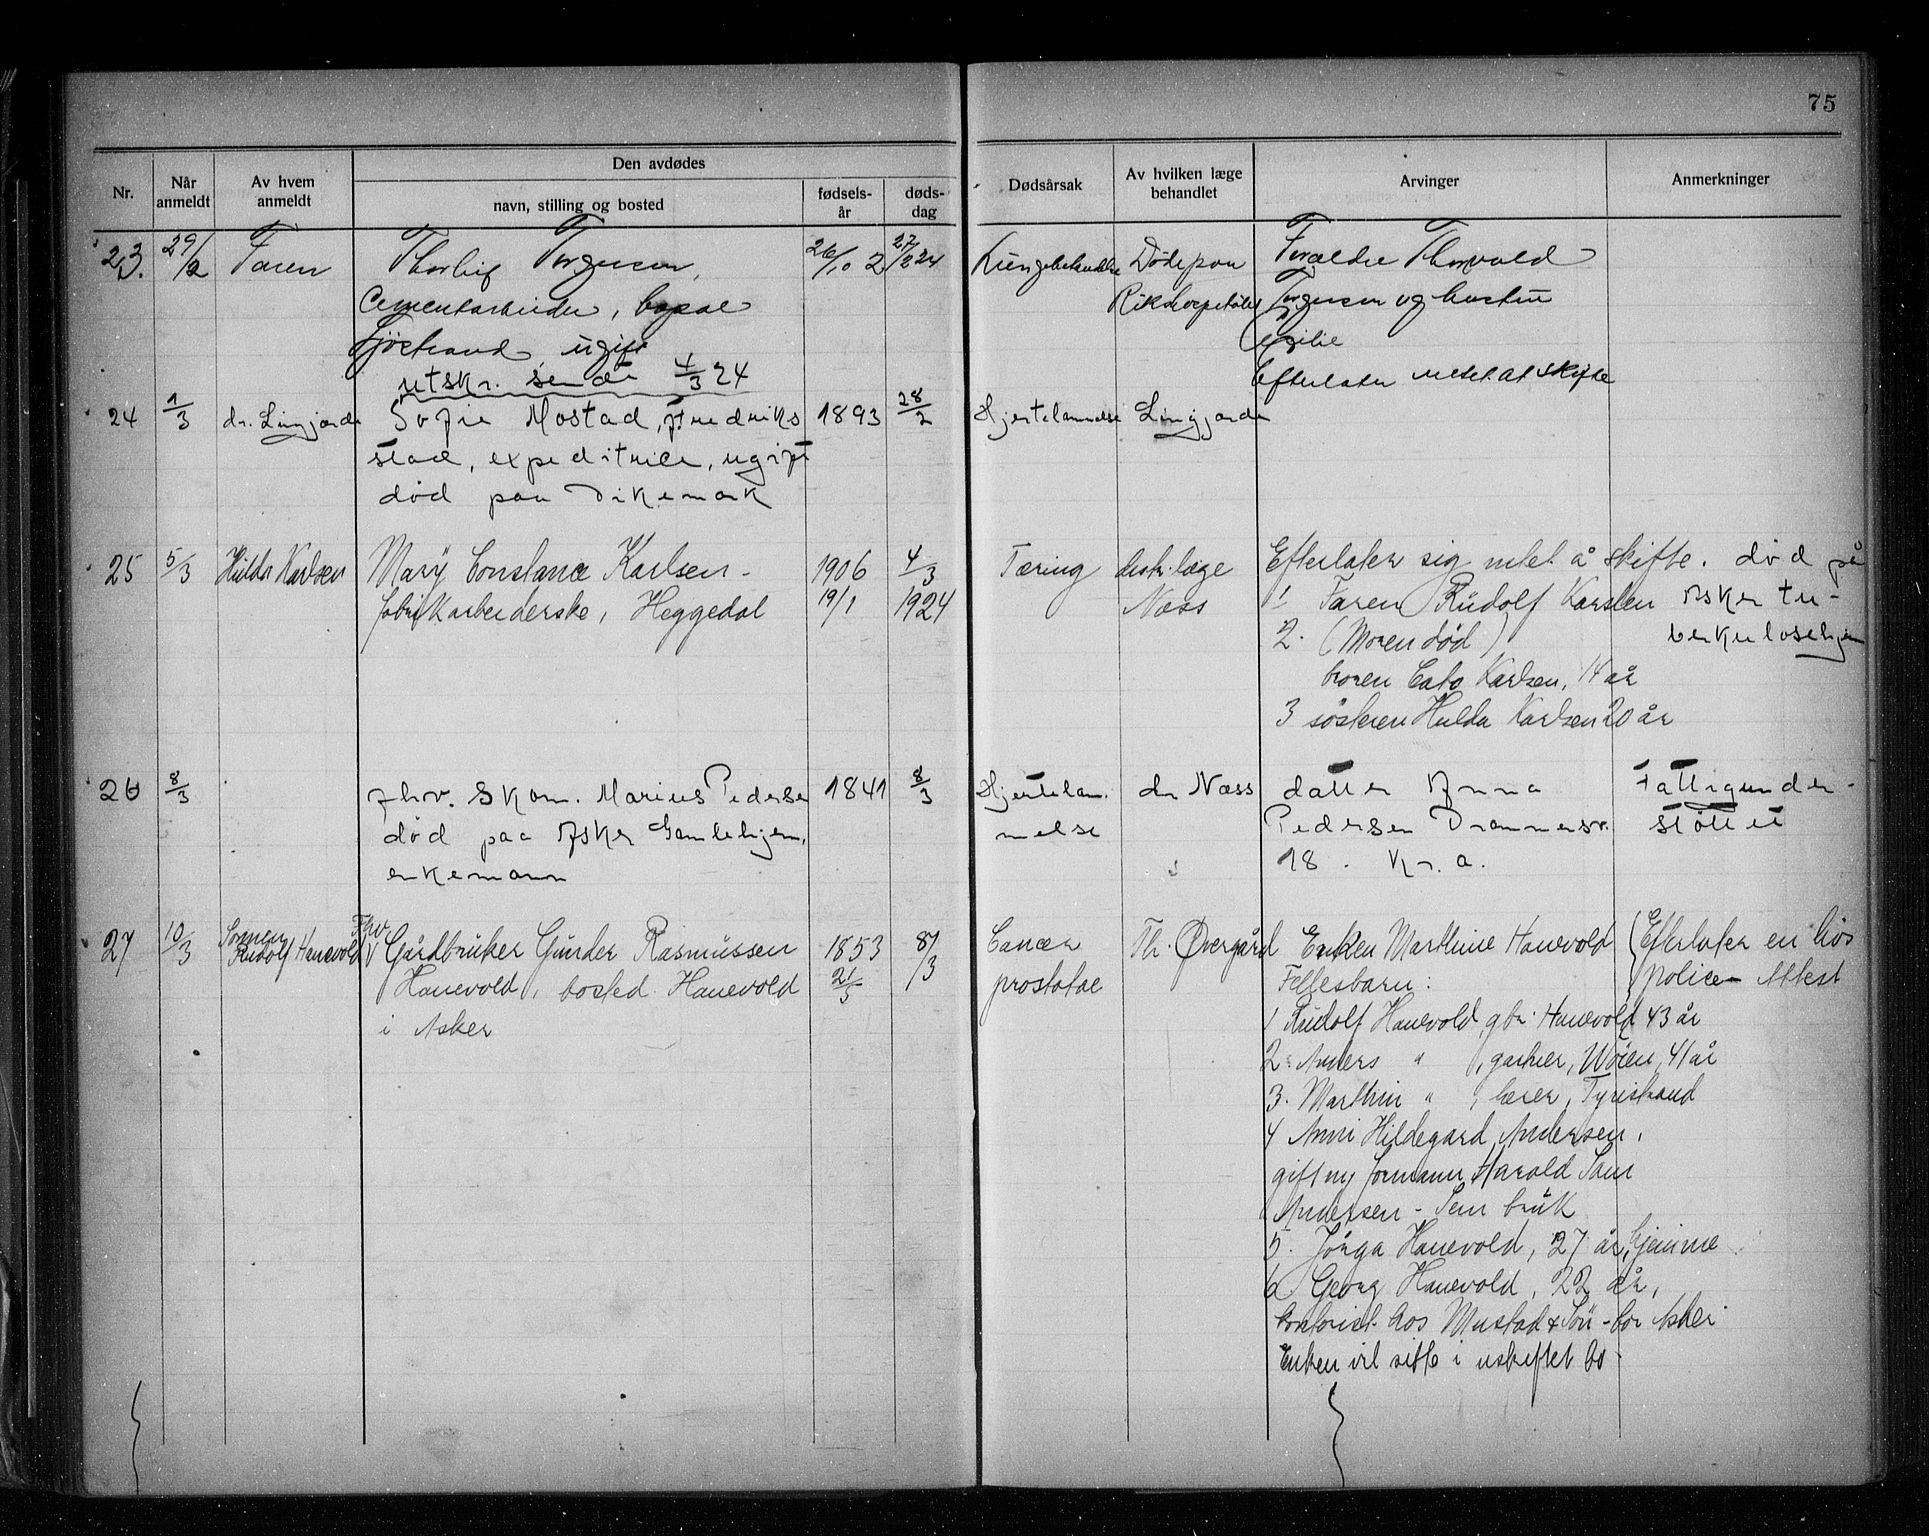 75
Nr.
Når anmeldt
Av hvem anmeldt
Den avdødes
navn, stilling og bosted
fødsels-år
døds-dag
Dødsårsak
Av hvilken læge behandlet
Arvinger
Anmerkninger
23. 29/2 Faren
Thorleif Torgersen,
Cementarbeider, bopæl
ugift
utskr. sendt 4/3 24
26/10 2
27/2 24
Døde paa
Rikshospitalet
Forældre Thorvald
Torgersen og hustru
Efterlater intet at skifte
24 1/3 dr. Lingjærde
Sofie Mostad, Fredriks
stad, expeditrice, ugift
død paa Dikemark
1893 28/2
Hjertelammelse Lingjærde
25 5/3 Hulda Karlsen
Mary Constance Karlsen -
fabrikarbeiderske, Heggedal
1906
19/1
4/3
1924
Tæring
distr. læge
Næss
Efterlater sig intet å skifte. død på
1 Faren Rudolf Karslen Asker tu-
2. (Moren død) berkulosehjem
broren Cato Karlsen, 14 år
3 søsteren Hulda Karlsen 20 år
26 8/3
fhv. Skom. Marius Pedersen
død paa Asker Gamlehjem,
enkemann
1841 8/3
Hjertelam.
melse
dr Næss
datter Anna
Pedersen Drammensv.
18. Kr.a.
Fattigunder-
støttet
27 10/3 Sønnen
Rudolf Hanevold
Fhv.
Gårdbruker Gunder Rasmussen
Hanevold, bosted Hanevold
i Asker
1853
21/5
8/3
Cancer
prostatae
Th. Øvergård
Enken Marthine Hanevold
Fellesbarn:
1 Rudolf Hanevold, gbr. Hanevold 43 år
2. Anders " , gartner, Wøien, 41 år
3. Marthin " , lærer, Tyristrand
4 Anni Hildegard Andersen,
gift m/ formann Harald
Andersen - Sem bruk
5. Hanevold, 27 år, hjemme
6 Georg Hanevold, 22 år,
kontorist hos Mustad & Søn - bor Asker
Enken vil sitte i uskiftet bo -
Efterlater en livs
police - Attest